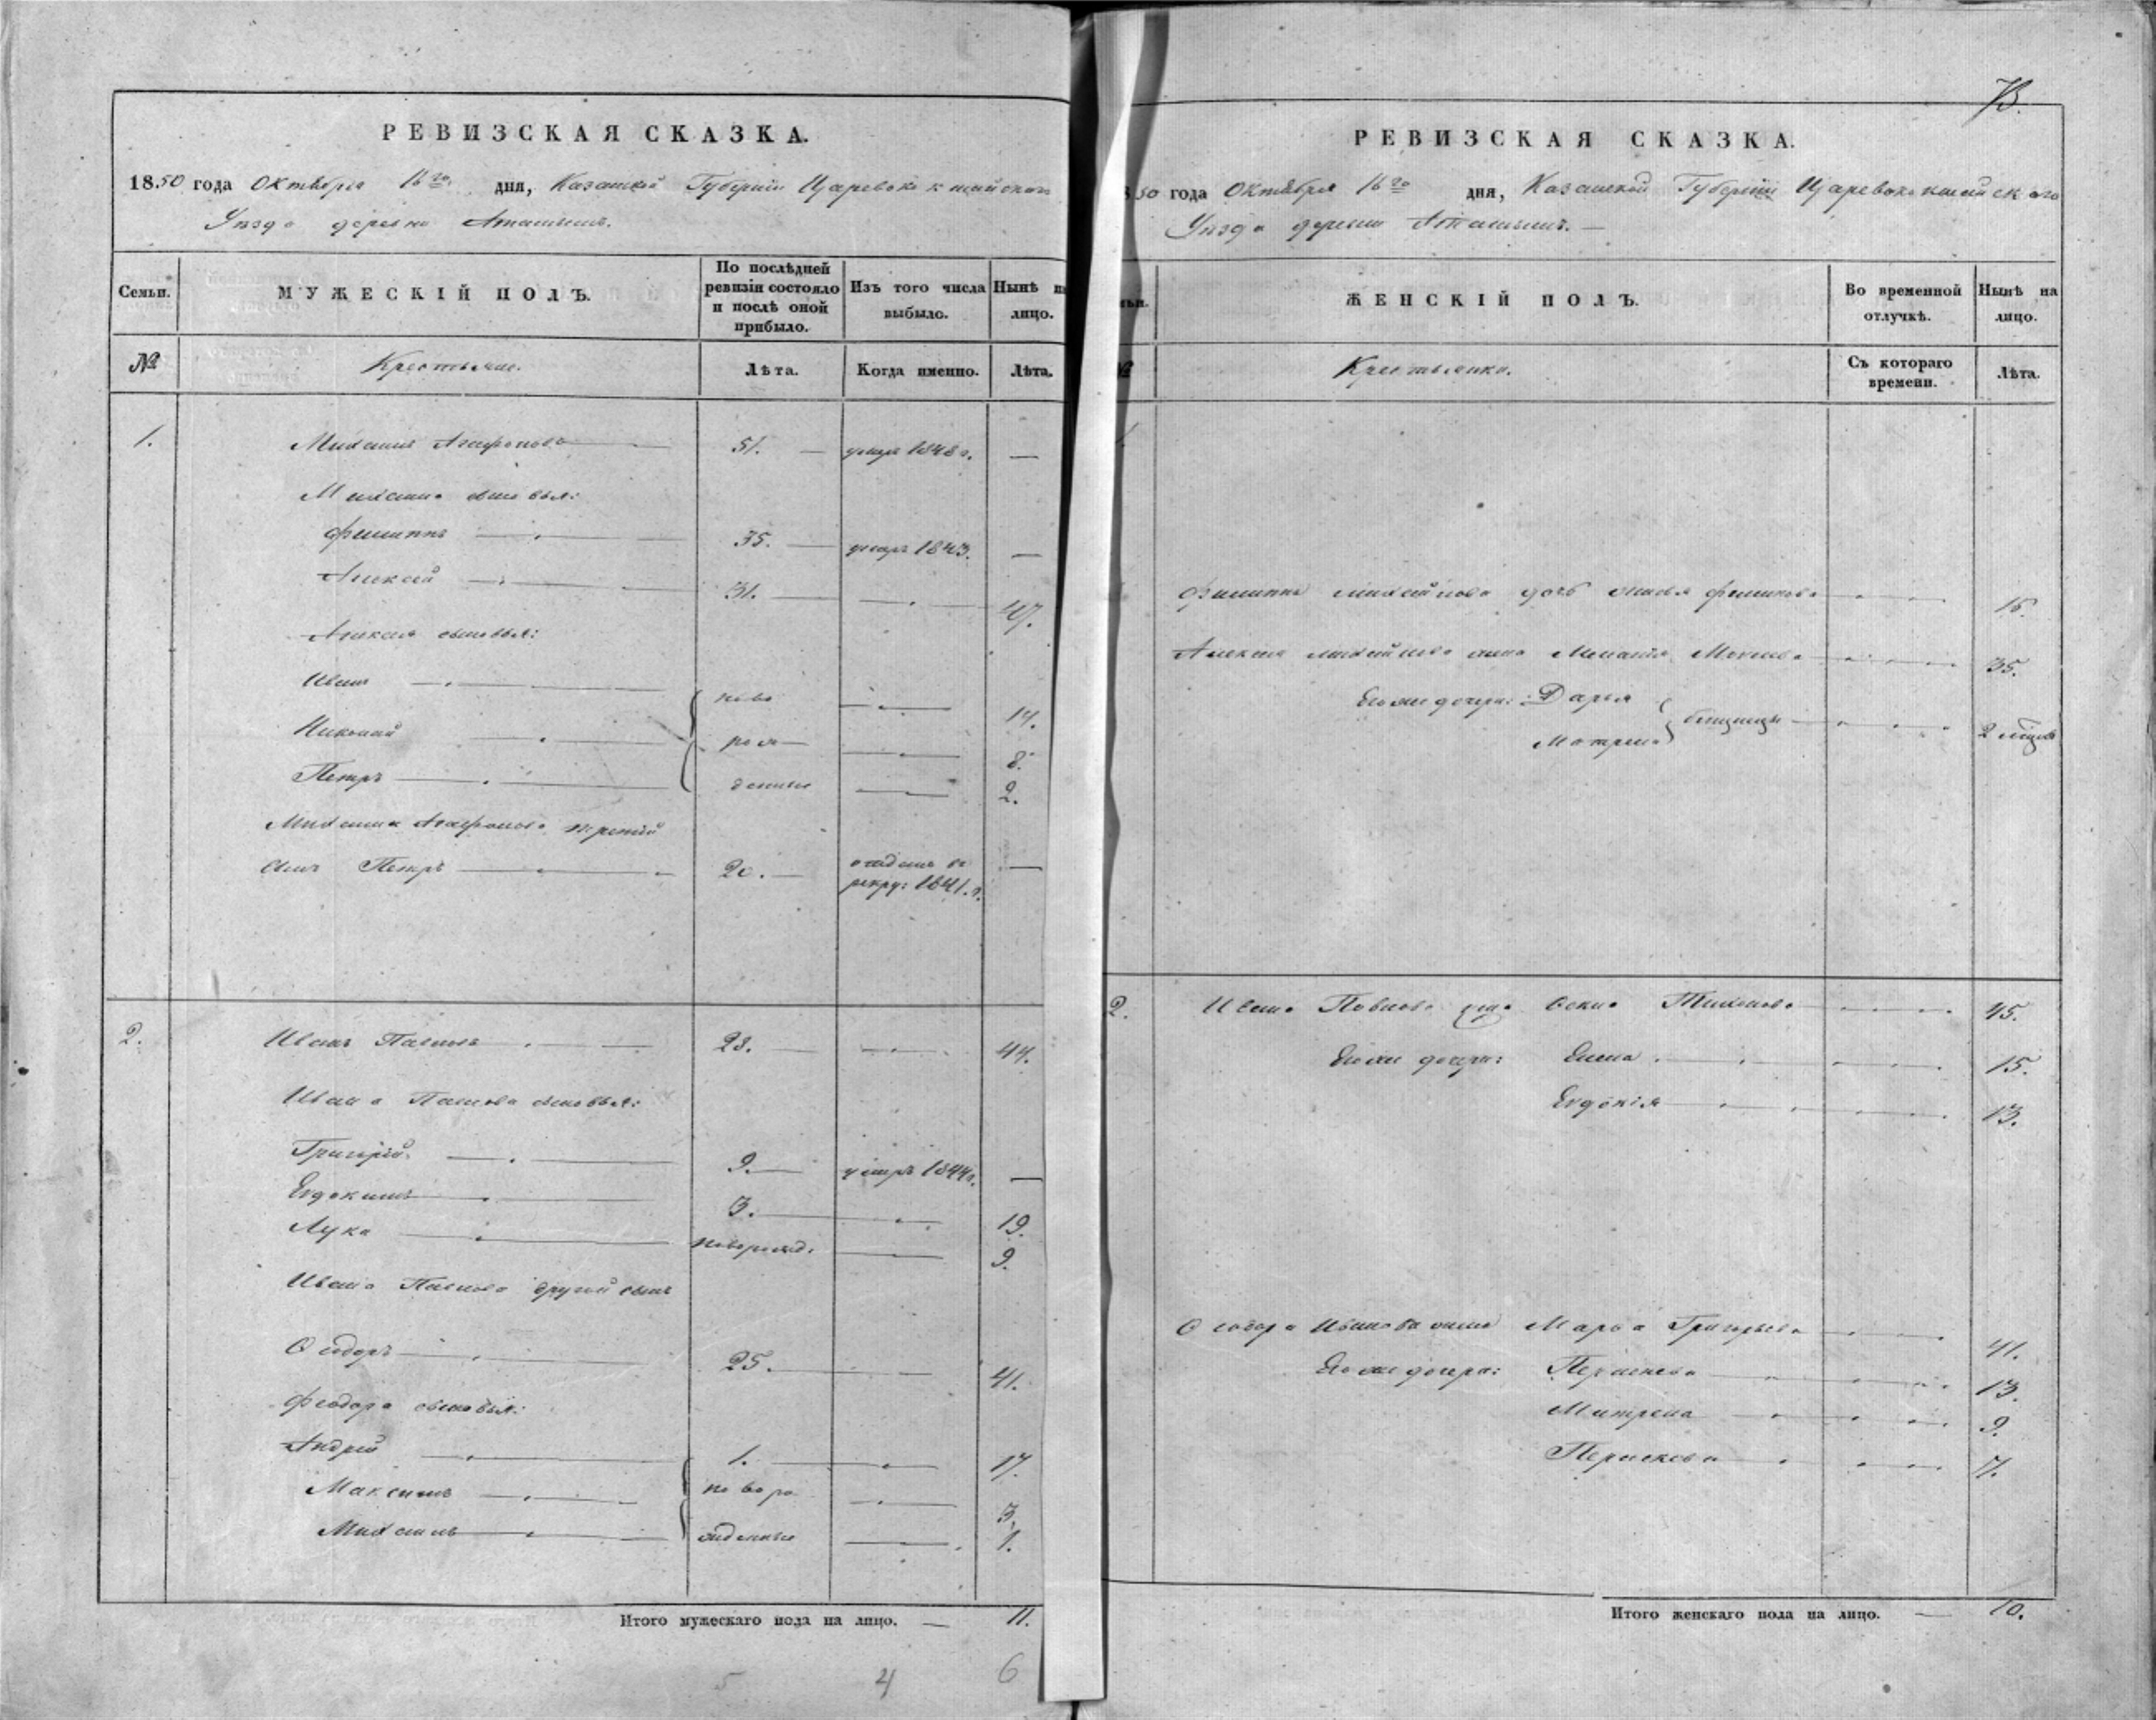 РЕВИЗСКАЯ СКАЗКА.
1850 года Октября 16го дня, Казанской Губернии Царевококшайскаго
Уѣзда деревни
Семьи.
МУЖЕСКІЙ ПОЛЪ.
По послѣдней ревизіи состояло и послѣ оной прибыло.
Изъ того числа выбыло.
Нынѣ на лицо.
№
Крестьяне.
Лѣта.
Когда именно.
Лѣта.
1.
Михаилъ Агафоновъ 51. умре 1848 г. —
Михаила сыновья:
Филиппъ 35. умеръ 1843. —
Алексѣй 31. — 47.
Алексѣя сыновья:
Иванъ ново — 14.
Николай рож — 8.
Петръ денные — 2.
Михаила Агафонова третій
сынъ Петръ 20. отданъ въ рекру: 1841. г. —
2.
Иванъ Павловъ 28. — 44.
Ивана Павлова сыновья:
Григорій 9. умеръ 1844 г. —
Евдокимъ 3. — 19.
Лука новорожд: — 9.
Ивана Павлова другой сынъ
Ѳеодоръ 25. — 41.
Феодора сыновья:
Андрей 1. — 17.
Максимъ новоро — 3.
Михаилъ жденные — 1.
Итого мужескаго пола на лицо. — 11.
5 4 6
73.
РЕВИЗСКАЯ СКАЗКА.
50 года Октября 16го дня, Казанской Губерніи Царевококшайскаго
Уѣзда деревни
ЖЕНСКІЙ ПОЛЪ.
Во временной отлучкѣ.
Нынѣ на лицо.
№
Крестьянки.
Съ котораго времени.
Лѣта.
1.
Филиппа Михайлова дочь Филипова 15.
Алексѣя Михайлова жена 35.
Его же дочери: Дарья
Матрена близнецы 2 мѣсяца
2.
Ивана Павлова жена 45.
Его же дочери: Елена 15.
Евдокія 13.
Ѳеодора Иванова жена Марья Григорьева 41.
Его же дочери: Пелагея 13.
Матрена 9.
Парасковья 7.
Итого женскаго пола на лицо. — 10.